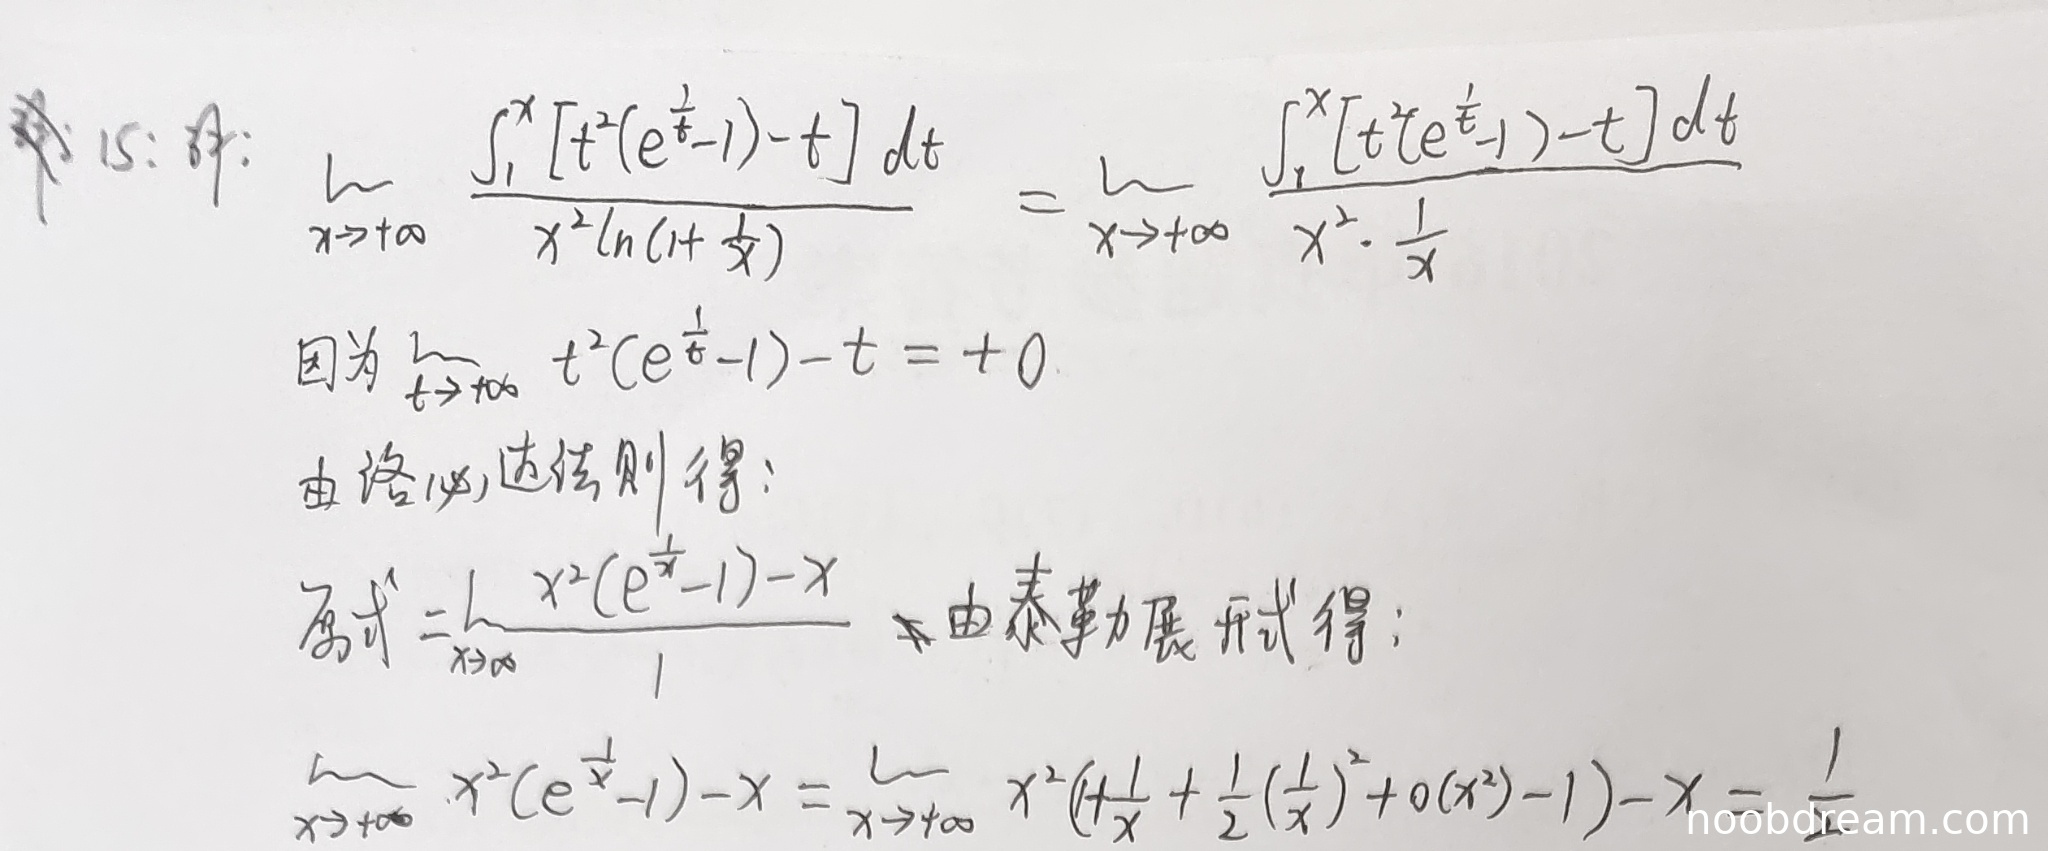 15: 解: lim x→+∞ ∫₁ˣ [t²(e^(1/t)-1)-t] dt / x² ln(1+1/x) = lim x→+∞ ∫₁ˣ [t²(e^(1/t)-1)-t] dt / x²·1/x
因为 lim t→+∞ t²(e^(1/t)-1)-t = +0
由洛必达法则得:
原式 = lim x→∞ x²(e^(1/x)-1)-x / 1 由泰勒展开式得:
lim x→+∞ x²(e^(1/x)-1)-x = lim x→+∞ x²(1+1/x+1/2(1/x)²+o(x²)-1)-x = 1/2
noobdream.com